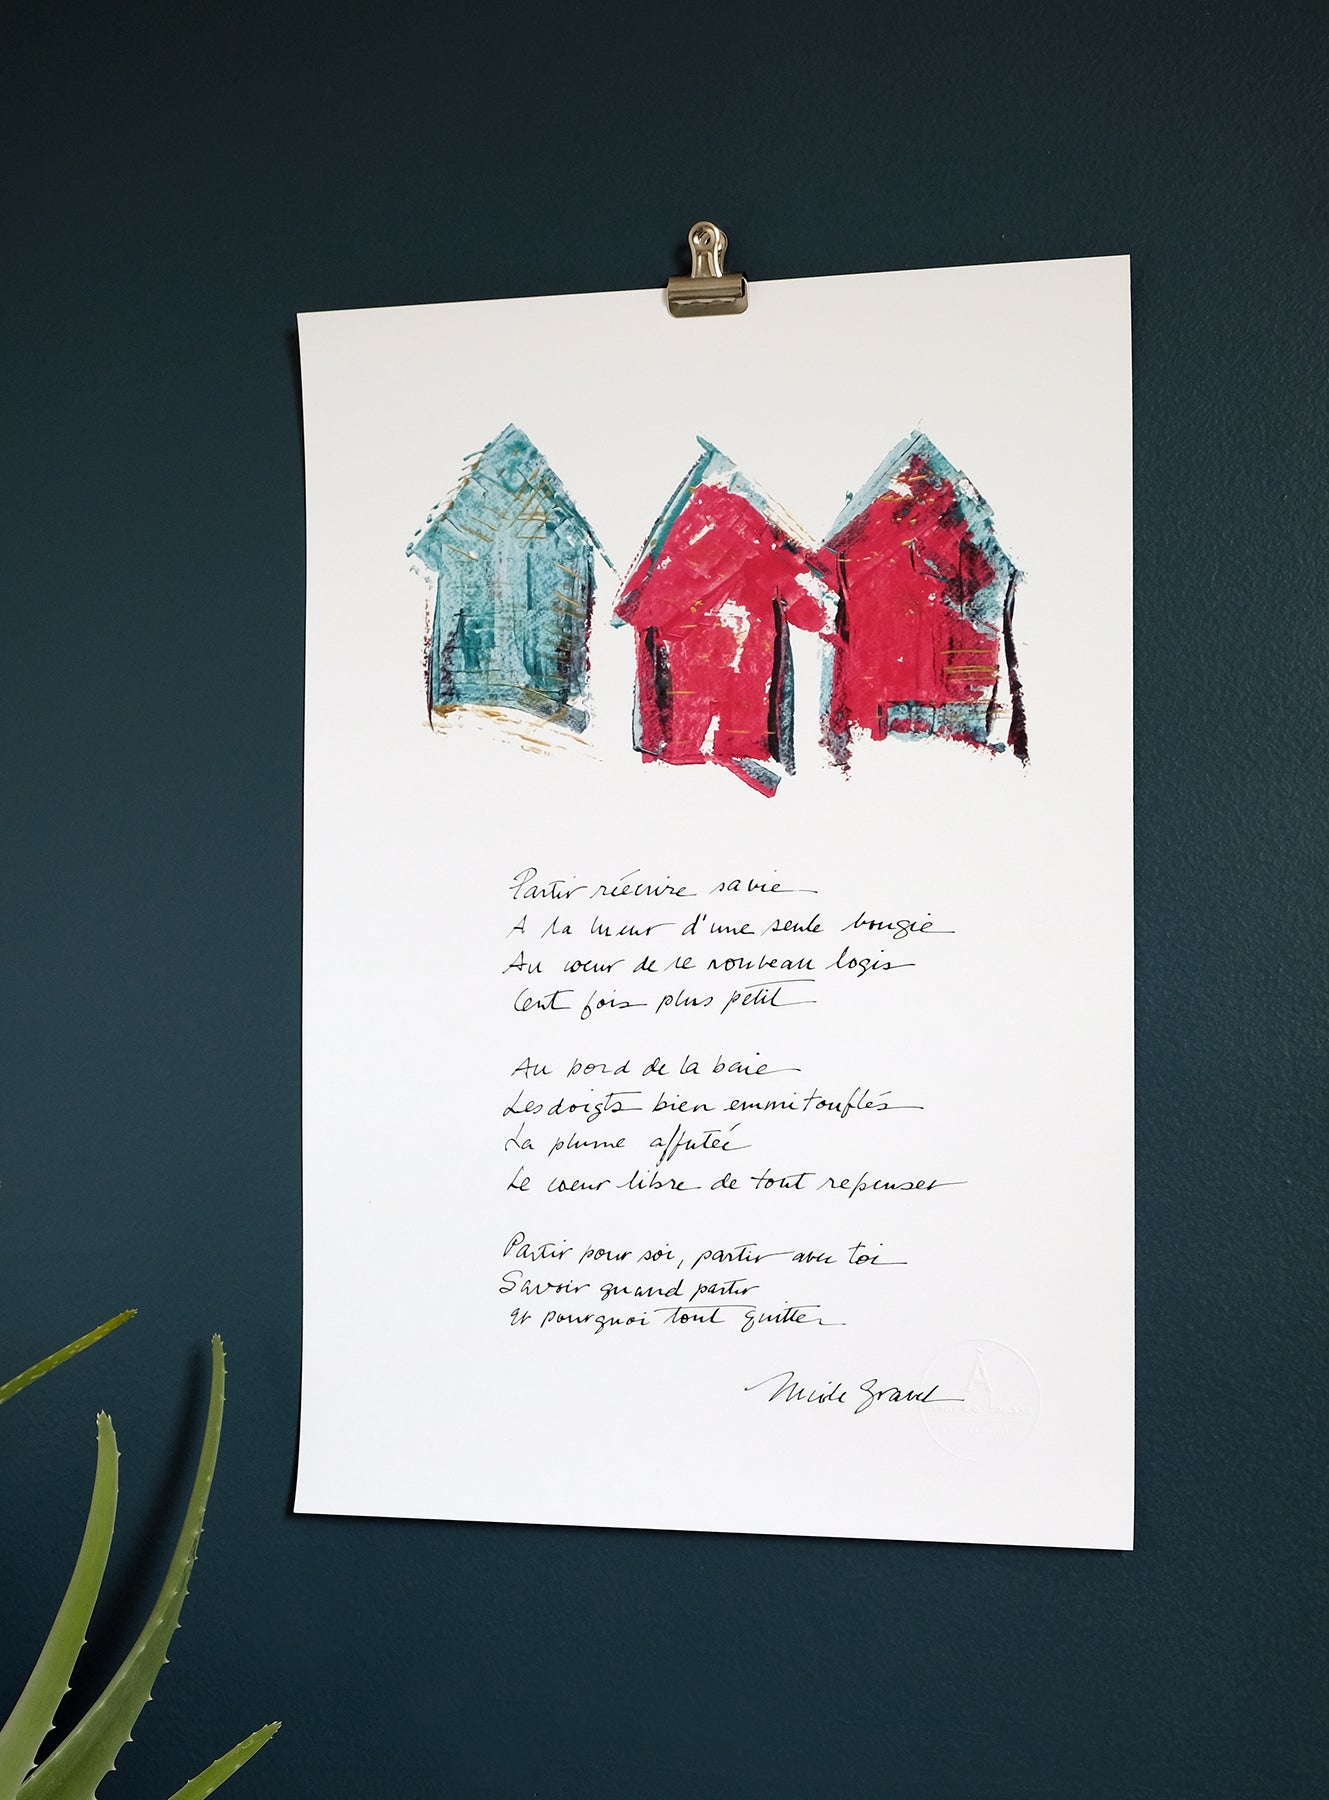 Partir réécrire sa vie
A la lueur d'une seule bougie
Au coeur de ce nouveau logis
Cent fois plus petit
Au bord de la baie
Les doigts bien emmitouflés
La plume affutée
Le coeur libre de tout repenser
Partir pour soi, partir avec toi
Savoir quand partir
et pourquoi tout quitter
Gravel